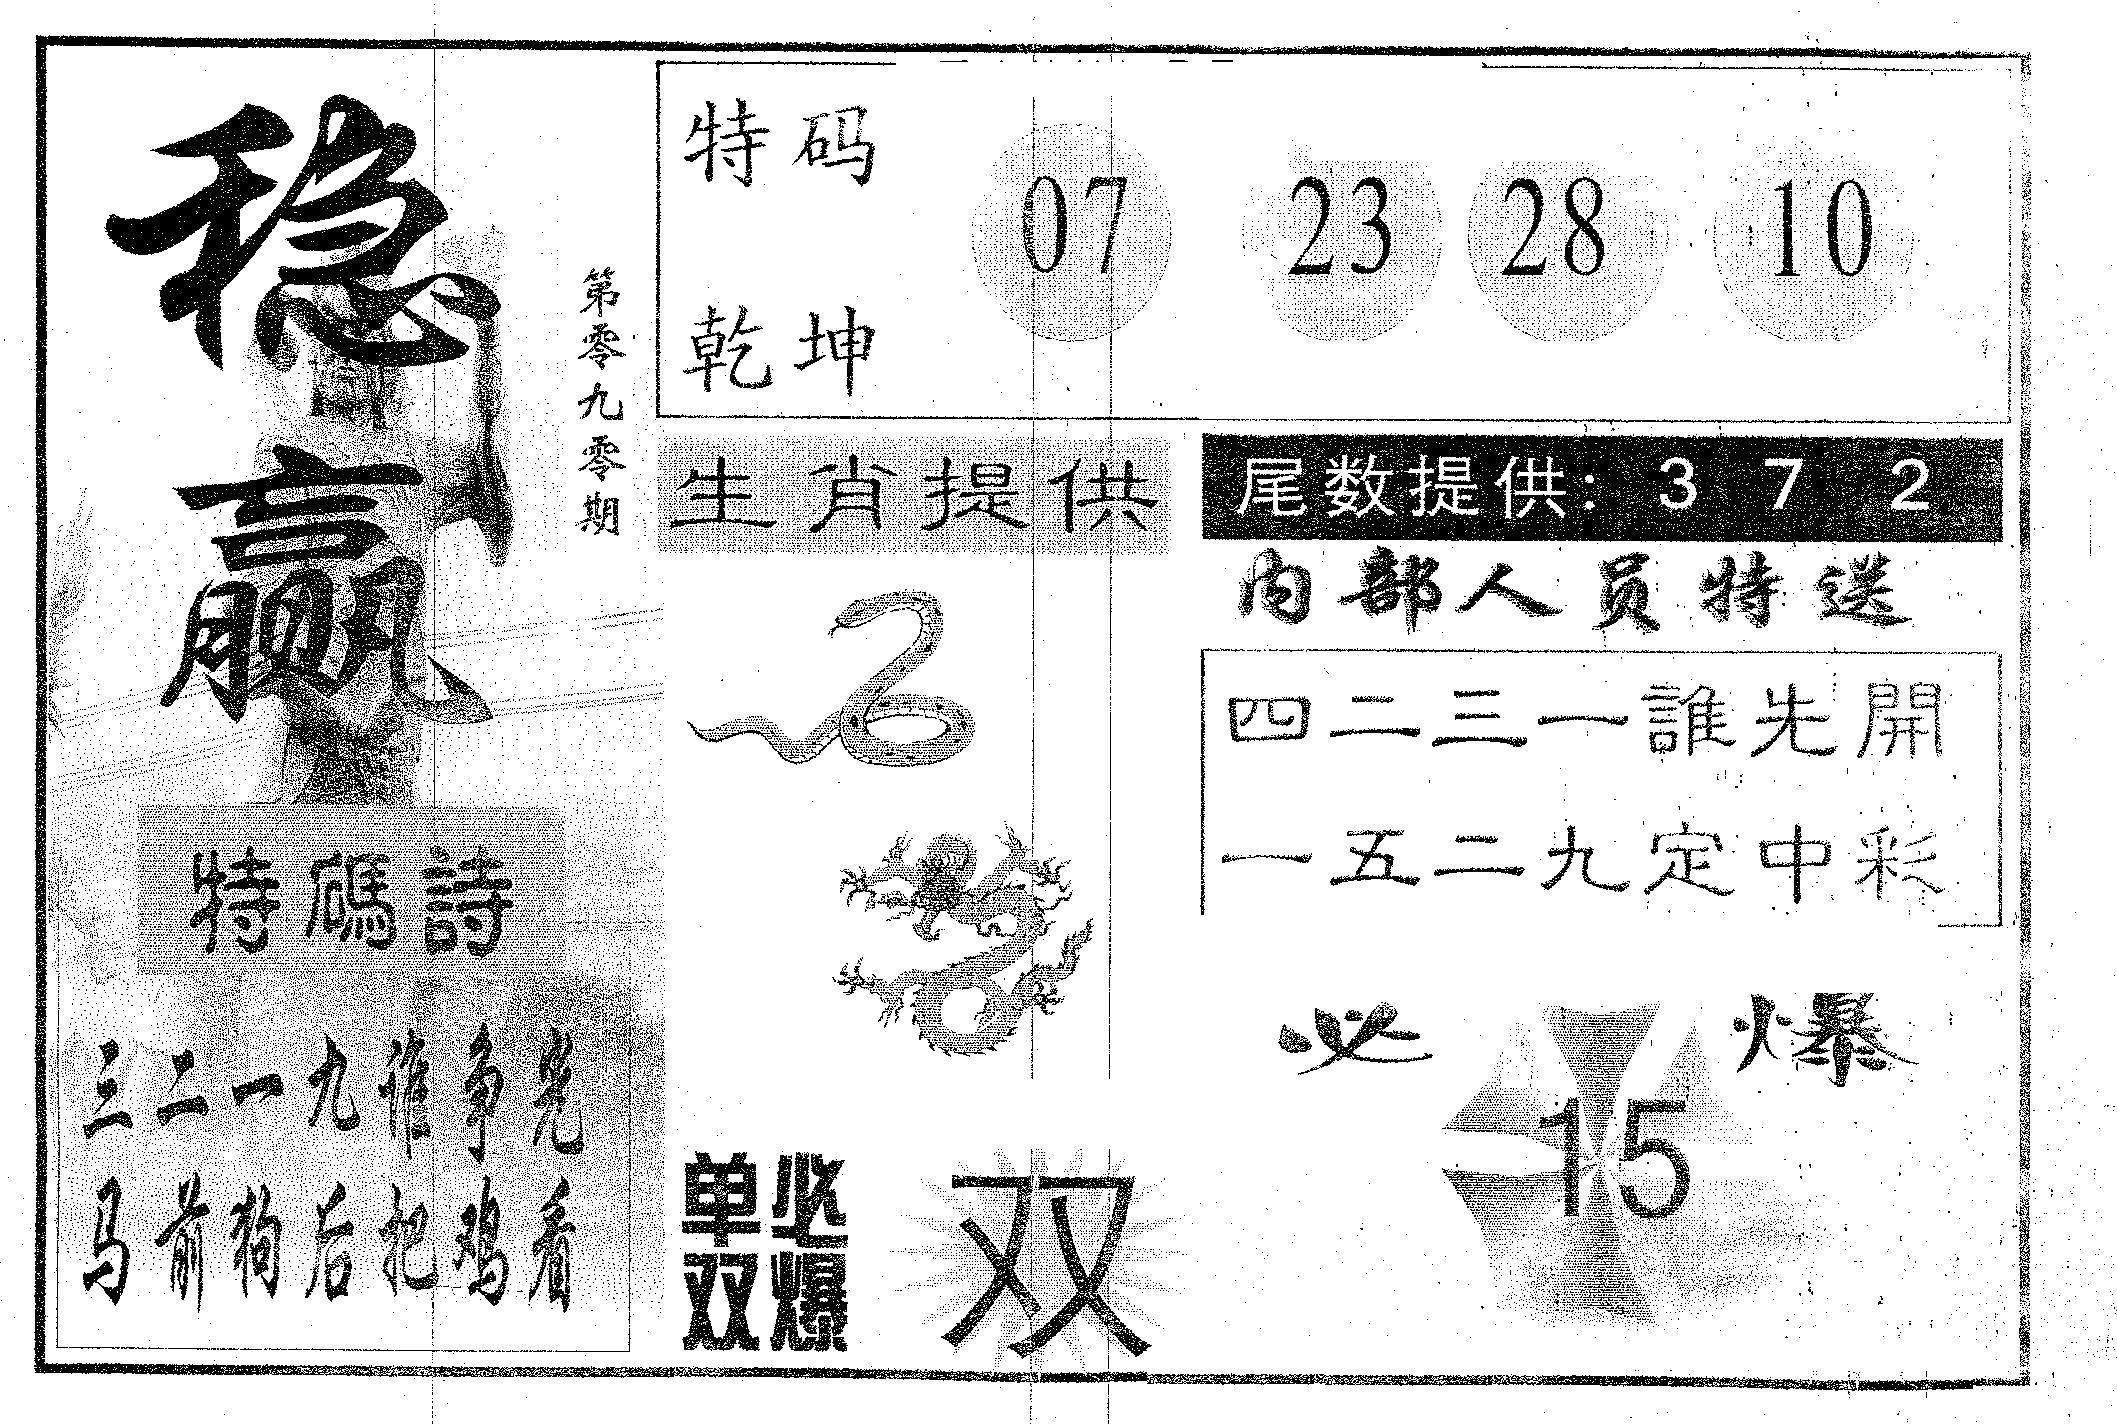 稳赢
第零九零期
特码
乾坤
07 23 28 10
特碼詩
三二一九谁争先
马前狗后把鸡看
生肖提供
单双
必爆
双
尾数提供：3 7 2
内部人员特送
四二三一誰先開
一五二九定中彩
必爆
15